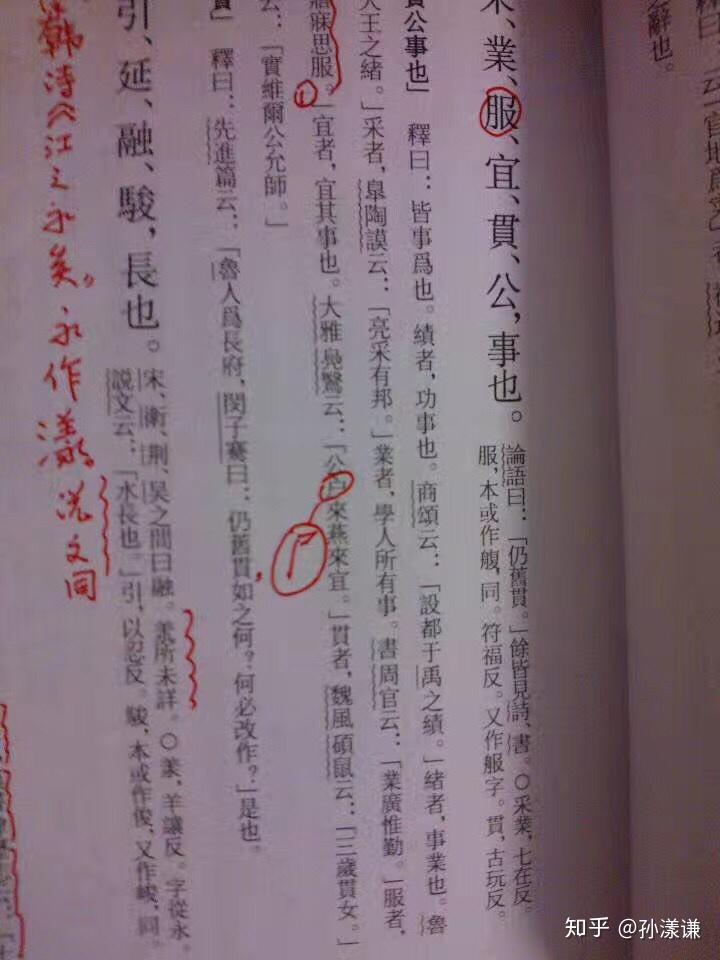 之辭也。
釋曰：
業、服、宜、貫、公，事也。
論語曰：「仍舊貫。」餘皆見詩、書。○采業，七在反。
服，本或作，同。符福反。又作服字。貫，古玩反。
公事也」　釋曰：皆事爲也。績者，功事也。商頌云：「設都于禹之績。」緒者，事業也。魯
大王之緒。」采者，臯陶謨云：「亮采有邦。」業者，學人所有事。書周官云：「業廣惟勤。」服者，
寐思服。」宜者，宜其事也。大雅鳧鷖云：「公來燕來宜。」貫者，魏風碩鼠云：「三歲貫女。」
①
尸
云：「實維爾公允師。」
釋曰：先進篇云：「魯人爲長府，閔子騫曰：仍舊貫如之何？何必改作？」是也。
引、延、融、駿，長也。
宋、衛、荆、吴之間曰融。羕所未詳。○羕，羊讓反。字從永。
説文云：「水長也。」引，以忍反。駿，本或作俊，又作峻，同。
韩诗《江之永矣。永作漾 说文同
知乎 @孙漾谦